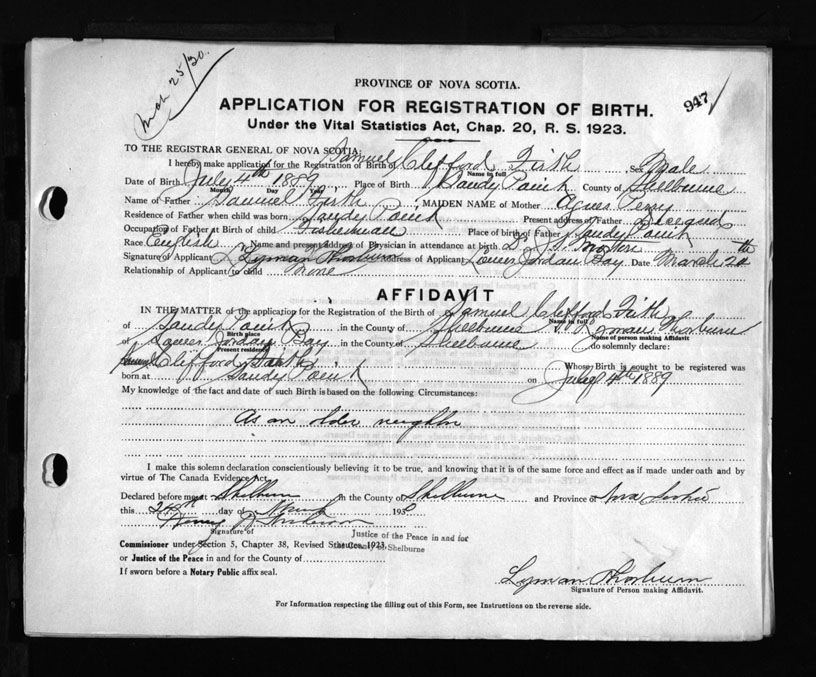 Mch 25/30.
947
PROVINCE OF NOVA SCOTIA.
APPLICATION FOR REGISTRATION OF BIRTH.
Under the Vital Statistics Act, Chap. 20, R. S. 1923.
TO THE REGISTRAR GENERAL OF NOVA SCOTIA:
I hereby make application for the Registration of Birth of Samuel Clifford Firth Sex Male
Name in full
Date of Birth July 4th 1889 Place of Birth Sandy Point County of Shelburne
Month Day Year
Name of Father Samuel Firth MAIDEN NAME of Mother Agnes Perry
Residence of Father when child was born Sandy Point Present address of Father Deceased
Occupation of Father at Birth of child Fisherman Place of birth of Father Sandy Point
Race English Name and present address of Physician in attendance at birth Dr
Signature of Applicant Lyman Thorburn Address of Applicant Lower Jordan Bay Date March 24th
Relationship of Applicant to child None
AFFIDAVIT
IN THE MATTER of the application for the Registration of the Birth of Samuel Clifford Firth
Name in full
of Sandy Point in the County of Shelburne I, Lyman Thorburn
Birth place
Name of person making Affidavit
of Lower Jordan Bay in the County of Shelburne do solemnly declare:
Present residence
Samuel Clifford Firth Whose Birth is sought to be registered was
born at Sandy Point on July 4th 1889
My knowledge of the fact and date of such Birth is based on the following Circumstances:
As an older neighbor
I make this solemn declaration conscientiously believing it to be true, and knowing that it is of the same force and effect as if made under oath and by
virtue of The Canada Evidence Act.
Declared before me at Shelburne in the County of Shelburne and Province of Nova Scotia
this 24th day of March 1930
Signature of
Justice of the Peace in and for
Commissioner under Section 5, Chapter 38, Revised Statutes, 1923.
the County of Shelburne
or Justice of the Peace in and for the County of
If sworn before a Notary Public affix seal.
Lyman Thorburn
Signature of Person making Affidavit.
For Information respecting the filling out of this Form, see Instructions on the reverse side.